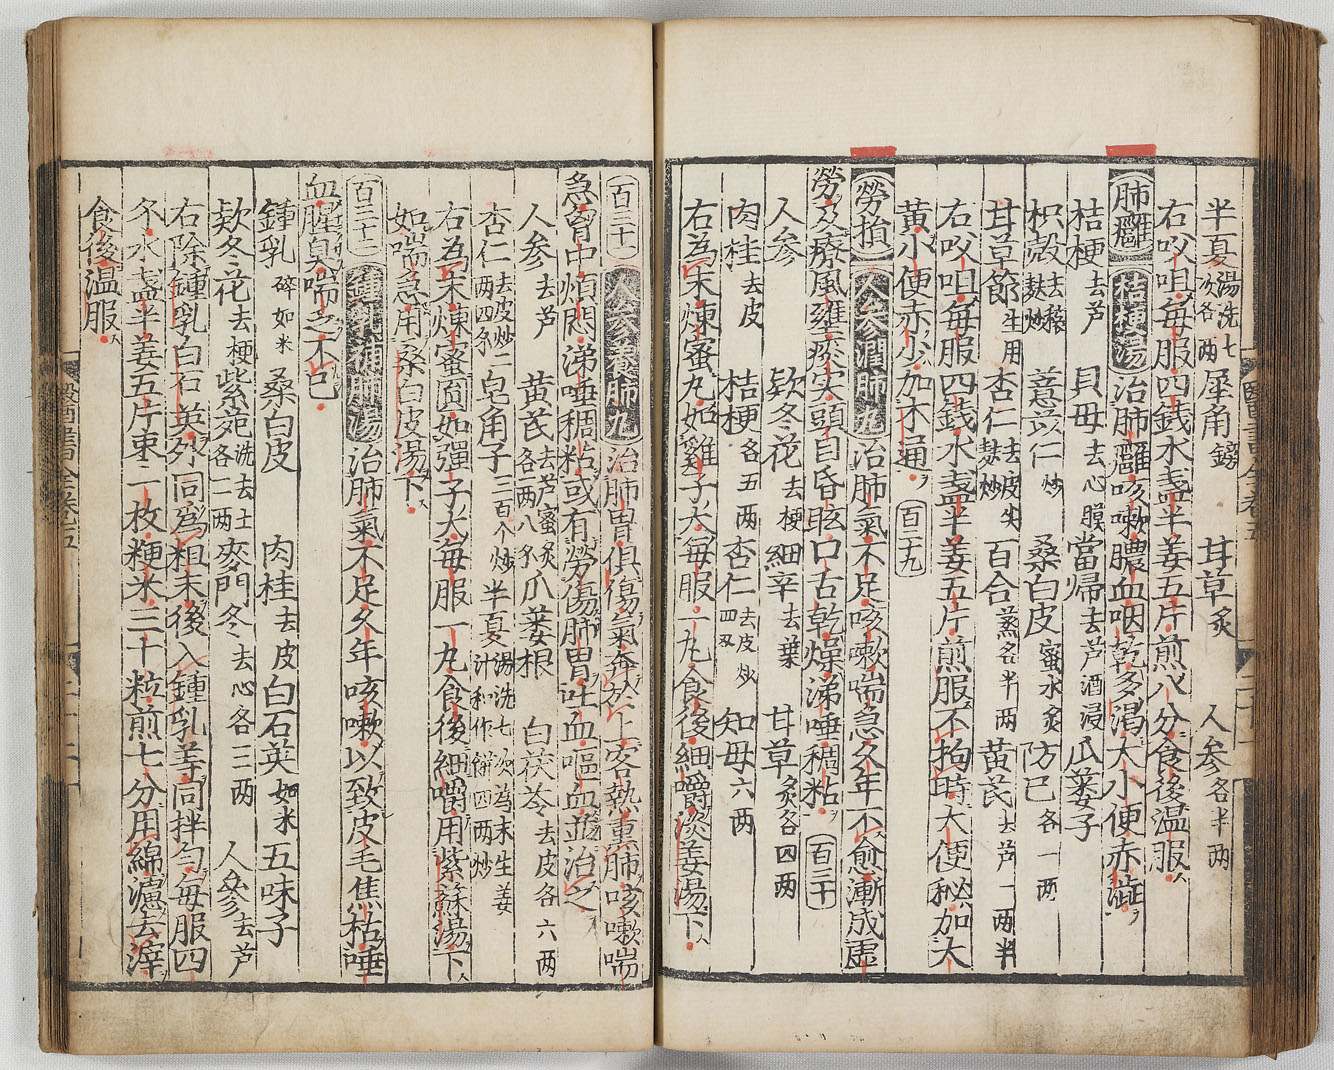 半夏湯洗七次各二両 犀角鎊 甘草炙 人参各半两
右㕮咀每服四錢水盞半姜五片煎八分食後温服
肺癰 桔梗湯 治肺癰咳嗽膿血咽乾多渴大小便赤澁
桔梗去芦 貝母去心膜 當歸去芦酒浸 瓜蔞子
枳殻去穰麸炒 薏苡仁炒 桑白皮蜜水炙 防已各一两
甘草節生用 杏仁去皮尖麸炒 百合蒸各半两 黄芪去芦一两半
右㕮咀每服四錢水盞半姜五片煎服不拘時大便秘加大
黄小便赤少加木通 百二十九
勞損 人参潤肺丸 治肺氣不足咳嗽喘急久年不愈漸成虚
勞及療風壅痰实頭目昏眩口舌乾燥涕唾稠粘 百三十
人参 欵冬花去梗 細辛去葉 甘草炙各四两
肉桂去皮 桔梗各五两 杏仁去皮炒四两 知母六两
右為末煉蜜丸如雞子大每服一丸食後細嚼淡姜湯下
百三十一 人参養肺丸 治肺胃俱傷氣奔於上客熱熏肺咳嗽喘
急胷中煩悶涕唾稠粘或有勞傷肺胃吐血嘔血並治之
人参去芦 黄芪去芦蜜炙各一两八分 瓜蔞根 白茯苓去皮各六两
杏仁去皮炒二两四分 皂角子三百个炒 半夏湯洗七次為末生姜汁和作餅四两炒
右為末煉蜜圆如彈子大每服一丸食後細嚼用紫蘇湯下
如喘急用桑白皮湯下
百三十二 鍾乳補肺湯 治肺氣不足久年咳嗽以致皮毛焦枯唾
血腥臭喘之不已
鍾乳碎如米 桑白皮 肉桂去皮 白石英如米 五味子
欵冬花去梗 紫菀洗去土各二两 麥門冬去心各三两 人參去芦
右除鍾乳白石英外同為粗末後入鍾乳等同拌勻每服四
夕水盞半姜五片枣二枚粳米三十粒煎七分用綿濾去滓
食後温服